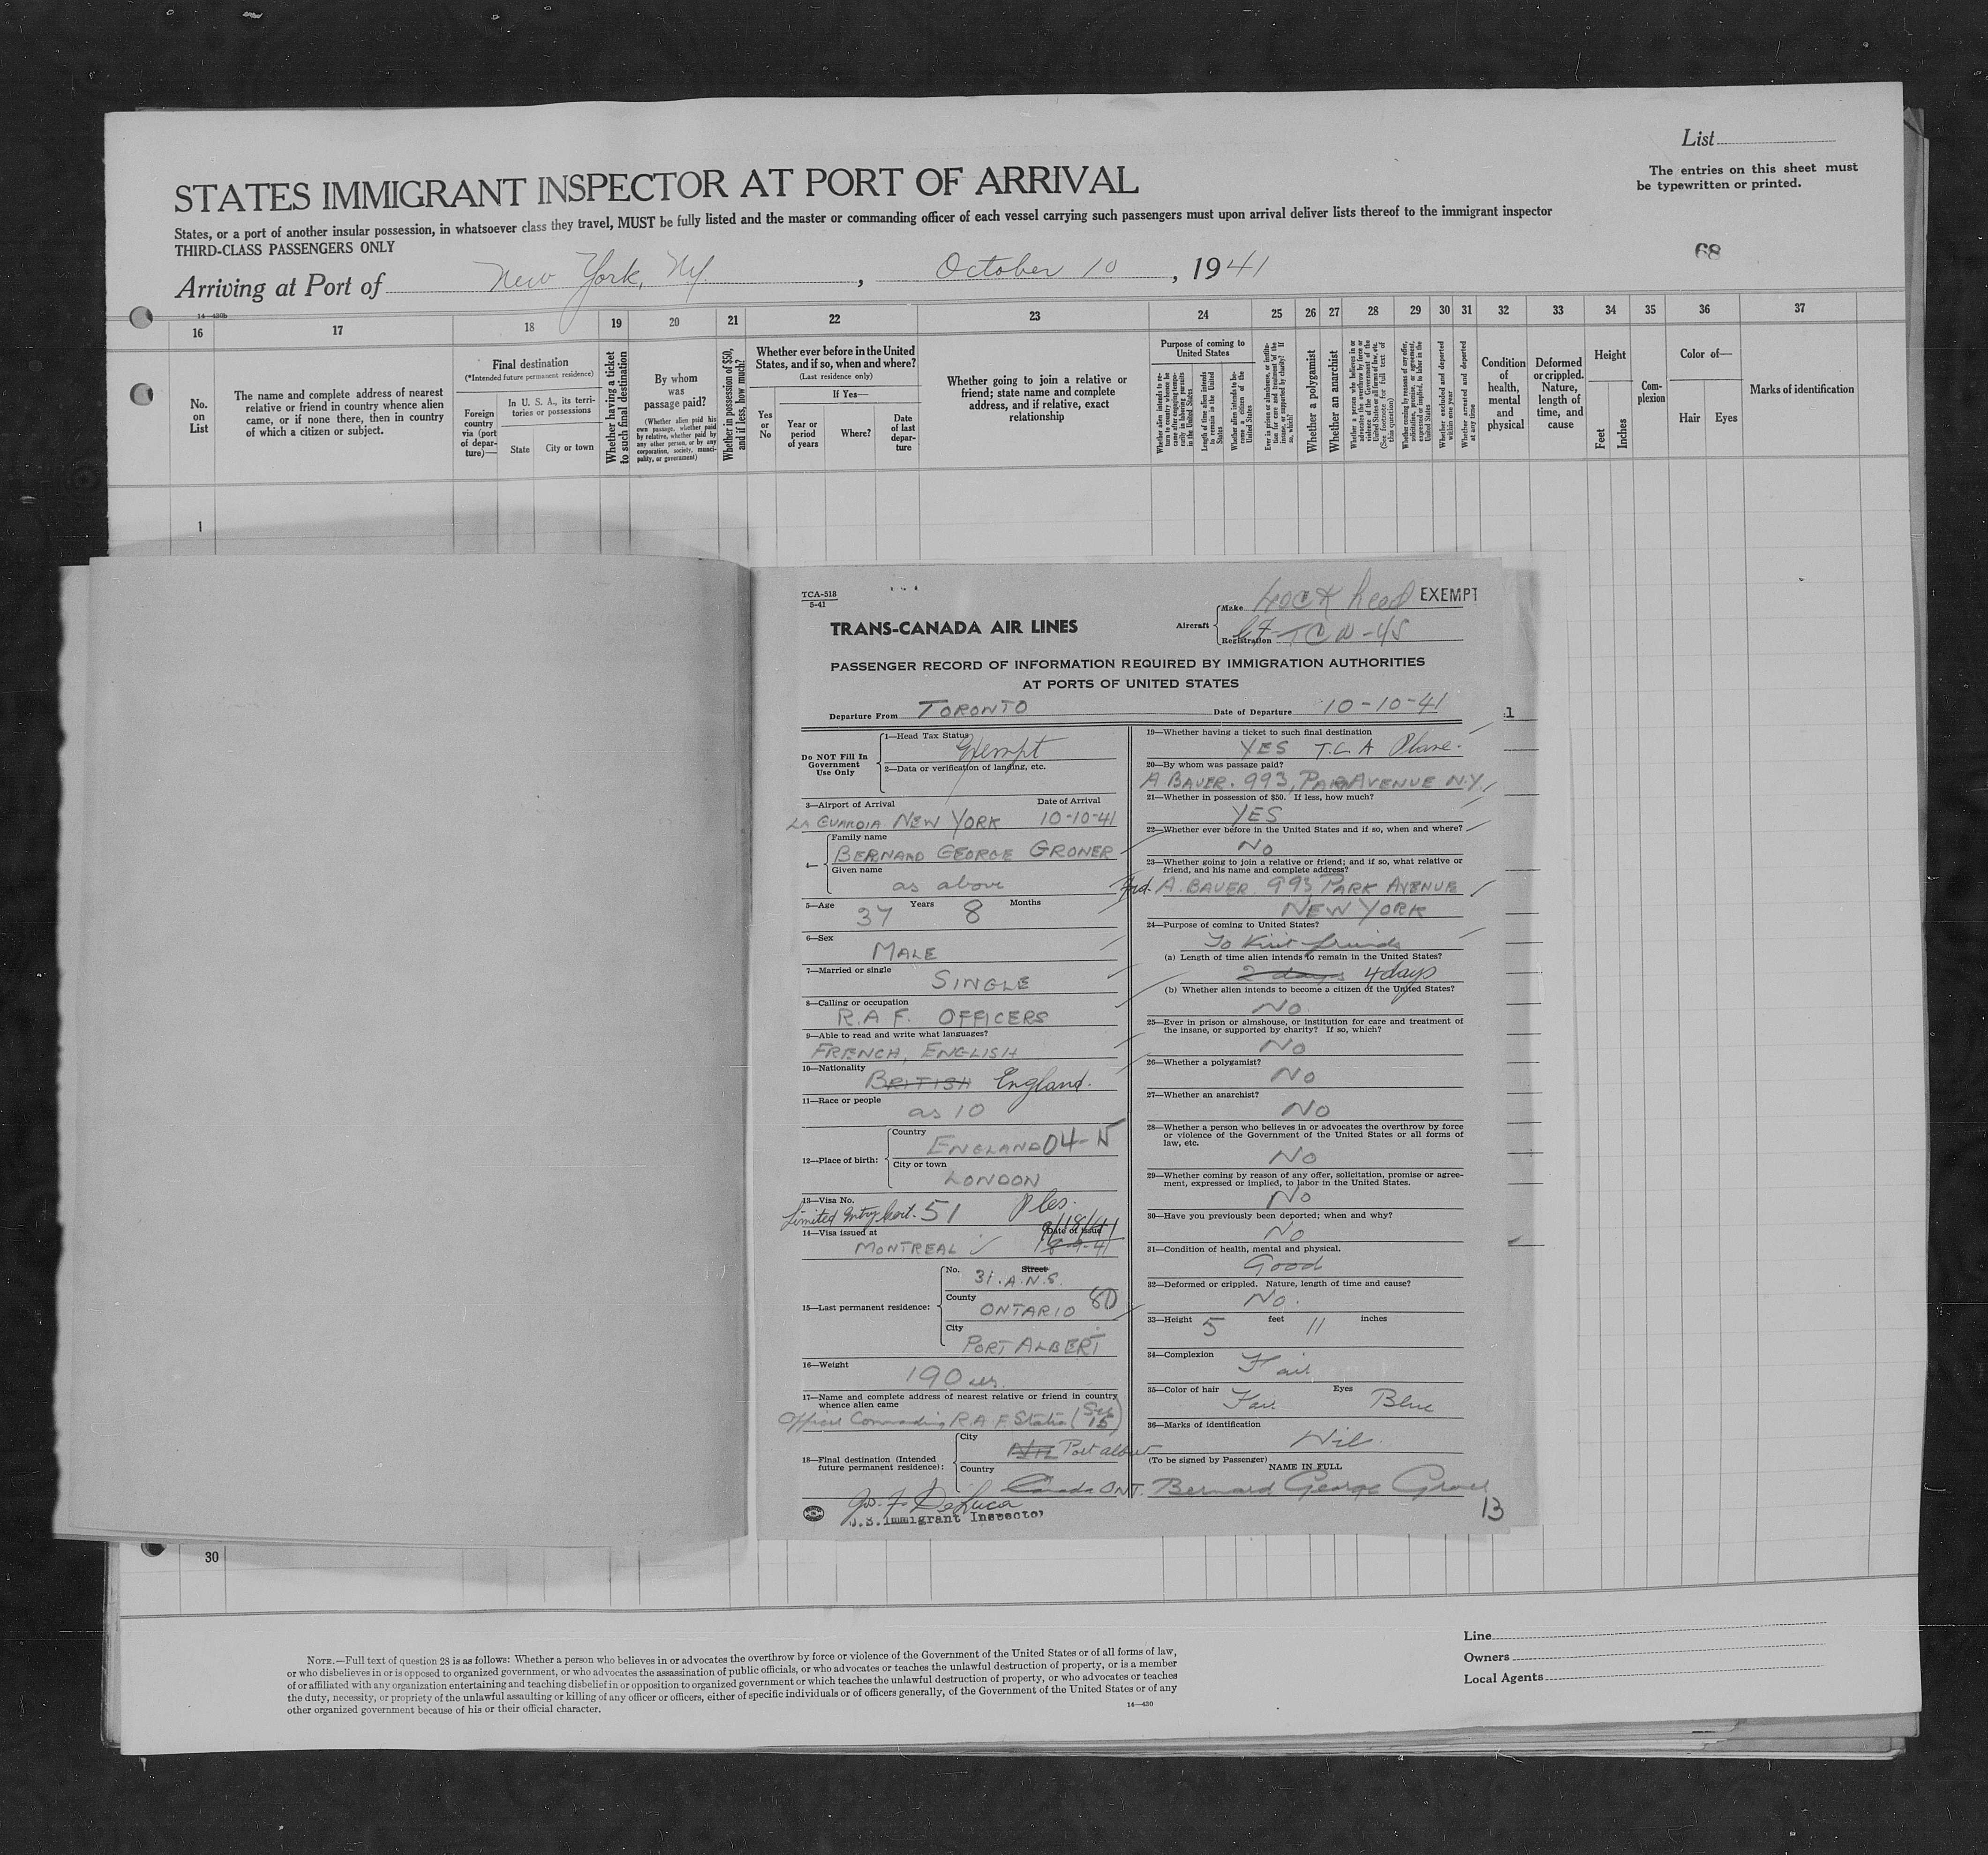 List
The entries on this sheet must
be typewritten or printed.
STATES IMMIGRANT INSPECTOR AT PORT OF ARRIVAL
States, or a port of another insular possession, in whatsoever class they travel, MUST be fully listed and the master or commanding officer of each vessel carrying such passengers must upon arrival deliver lists thereof to the immigrant inspector
THIRD-CLASS PASSENGERS ONLY
68
Arriving at Port of New York, NY, October 10, 1941
14—430b
16 17 18 19 20 21 22 23 24 25 26 27 28 29 30 31 32 33 34 35 36 37
No.
on
List
The name and complete address of nearest
relative or friend in country whence alien
came, or if none there, then in country
of which a citizen or subject.
Final destination
(*Intended future permanent residence)
Foreign
country
via (port
of depar-
ture)—
In U. S. A., its terri-
tories or possessions
State City or town
Whether having a ticket
to such final destination
By whom
was
passage paid?
(Whether alien paid his
own passage, whether paid
by relative, whether paid by
any other person, or by any
corporation, society, munici-
pality, or government)
Whether in possession of $50,
and if less, how much?
Whether ever before in the United
States, and if so, when and where?
(Last residence only)
Yes
or
No
If Yes—
Year or
period
of years
Where?
Date
of last
depar-
ture
Whether going to join a relative or
friend; state name and complete
address, and if relative, exact
relationship
Purpose of coming to
United States
Length of time alien intends
to remain in the United
States
Whether alien intends to be-
come a citizen of the
United States
Whether a polygamist
Whether an anarchist
Whether excluded and deported
within one year
Whether arrested and deported
at any time
Condition
of
health,
mental
and
physical
Deformed
or crippled.
Nature,
length of
time, and
cause
Height
Feet
Inches
Com-
plexion
Color of—
Hair Eyes
Marks of identification
1
TCA-518
5-41
TRANS-CANADA AIR LINES
Aircraft
Make Lockheed
Registration CF-TCN-45
EXEMPT
PASSENGER RECORD OF INFORMATION REQUIRED BY IMMIGRATION AUTHORITIES
AT PORTS OF UNITED STATES
Departure From TORONTO Date of Departure 10-10-41
Do NOT Fill In
Government
Use Only
1—Head Tax Status
Exempt
2—Data or verification of landing, etc.
3—Airport of Arrival Date of Arrival
LA GUARDIA NEW YORK 10-10-41
4—
Family name
BERNARD GEORGE GRONER
Given name
as above
5—Age 37 Years 8 Months
6—Sex
MALE
7—Married or single
SINGLE
8—Calling or occupation
R.A.F. OFFICERS
9—Able to read and write what languages?
FRENCH, ENGLISH
10—Nationality
BRITISH England.
11—Race or people
as 10
12—Place of birth:
Country
ENGLAND 04-N
City or town
LONDON
13—Visa No.
Limited Entry Cert. 51
14—Visa issued at Date of issue
MONTREAL 9/18/41
18-9-41
15—Last permanent residence:
No. Street
31. A.N.S.
County
ONTARIO 80
City
PORT ALBERT
16—Weight
190 lbs.
17—Name and complete address of nearest relative or friend in country
whence alien came
Officer Commanding R.A.F. Station (See 15)
18—Final destination (Intended
future permanent residence):
City
NIL Port Albert
Country
Canada ONT.
U.S. Immigrant Inspector
19—Whether having a ticket to such final destination
YES T.C.A Plane.
20—By whom was passage paid?
A. BAUER. 993, PARK AVENUE N.Y.
21—Whether in possession of $50. If less, how much?
YES
22—Whether ever before in the United States and if so, when and where?
NO
23—Whether going to join a relative or friend; and if so, what relative or
friend, and his name and complete address?
Frd. A. BAUER. 993 PARK AVENUE
NEW YORK
24—Purpose of coming to United States?
To visit friends
(a) Length of time alien intends to remain in the United States?
2 days 4 days
(b) Whether alien intends to become a citizen of the United States?
No.
25—Ever in prison or almshouse, or institution for care and treatment of
the insane, or supported by charity? If so, which?
No
26—Whether a polygamist?
No
27—Whether an anarchist?
No
28—Whether a person who believes in or advocates the overthrow by force
or violence of the Government of the United States or all forms of
law, etc.
No
29—Whether coming by reason of any offer, solicitation, promise or agree-
ment, expressed or implied, to labor in the United States.
No
30—Have you previously been deported; when and why?
No
31—Condition of health, mental and physical.
Good
32—Deformed or crippled. Nature, length of time and cause?
No.
33—Height 5 feet 11 inches
34—Complexion
Fair
35—Color of hair Eyes
Fair Blue
36—Marks of identification
Nil.
(To be signed by Passenger)
NAME IN FULL
Bernard George Groner
13
30
NOTE.—Full text of question 28 is as follows: Whether a person who believes in or advocates the overthrow by force or violence of the Government of the United States or of all forms of law,
or who disbelieves in or is opposed to organized government, or who advocates the assassination of public officials, or who advocates or teaches the unlawful destruction of property, or is a member
of or affiliated with any organization entertaining and teaching disbelief in or opposition to organized government or which teaches the unlawful destruction of property, or who advocates or teaches
the duty, necessity, or propriety of the unlawful assaulting or killing of any officer or officers, either of specific individuals or of officers generally, of the Government of the United States or of any
other organized government because of his or their official character.
14—430
Line
Owners
Local Agents